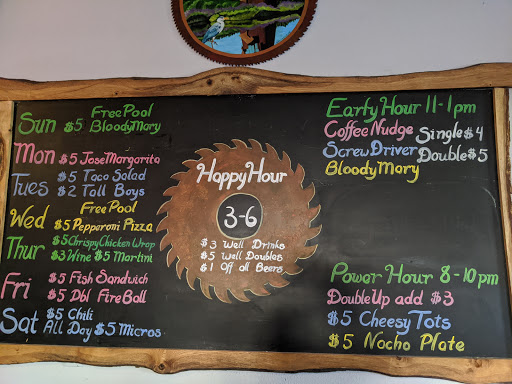 Sun Free Pool
$5 Bloody Mary
Mon $5 Jose Margarita
Tues $5 Taco Salad
$2 Tall Boys
Wed Free Pool
$5 Pepperoni Pizza
Thur $5 Chrispy Chicken Wrap
$3 Wine $5 Martini
Fri $5 Fish Sandwich
$5 Dbl Fire Ball
Sat $5 Chili
All Day $5 Micros
Happy Hour
3-6
$3 Well Drinks
$5 Well Doubles
$1 Off all Beers
Early Hour 11-1pm
Coffee Nudge
Screw Driver
Bloody Mary
Single $4
Double $5
Power Hour 8-10pm
Double Up add $3
$5 Cheesy Tots
$5 Nacho Plate